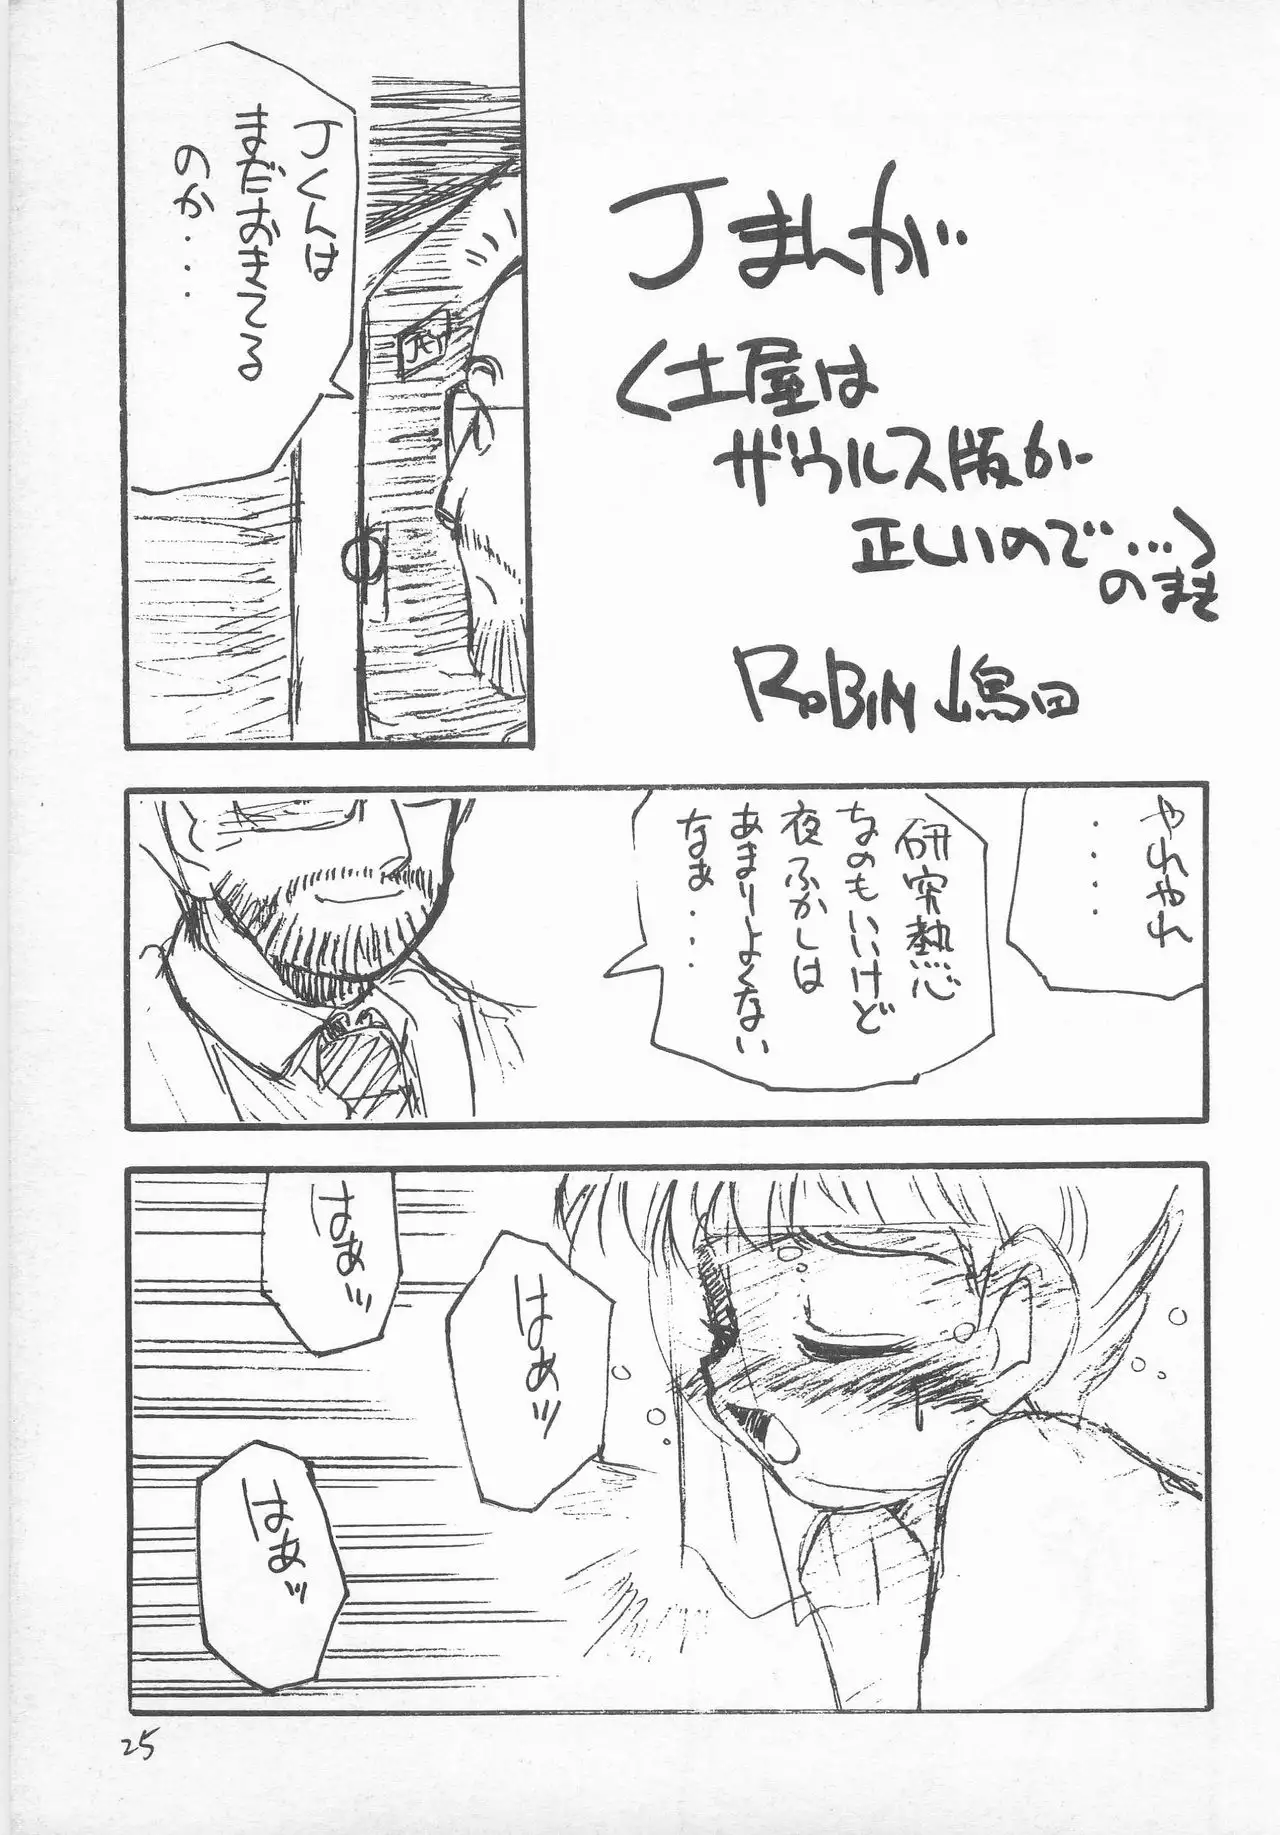 Jまんが
(土屋は
ザウルス版が
正しいので…)
のまき
ROBIN 嶋田
Jくんは
まだおきてる
のか・・・
JAY
やれやれ
・・・・
研究熱心
なのもいいけど
夜ふかしは
あまりよくない
なぁ・・・
はぁッ
はぁッ
はぁッ
25